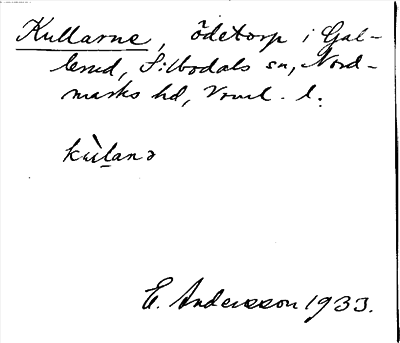 Kullarne, ödetorp i Gal-
lerud, Silbodals sn, Nord-
marks hd, Vrml. l.
kùlanə
E. Andersson 1933.